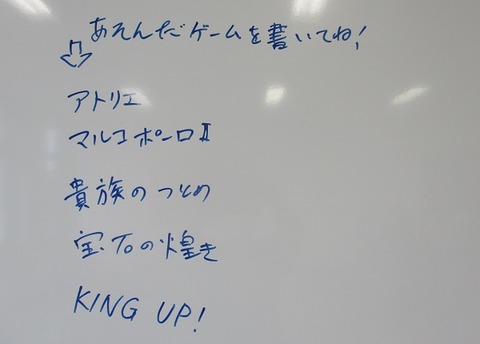 あそんだゲームを書いてね!
アトリエ
マルコポーロⅡ
貴族のつとめ
宝石の煌き
KING UP!